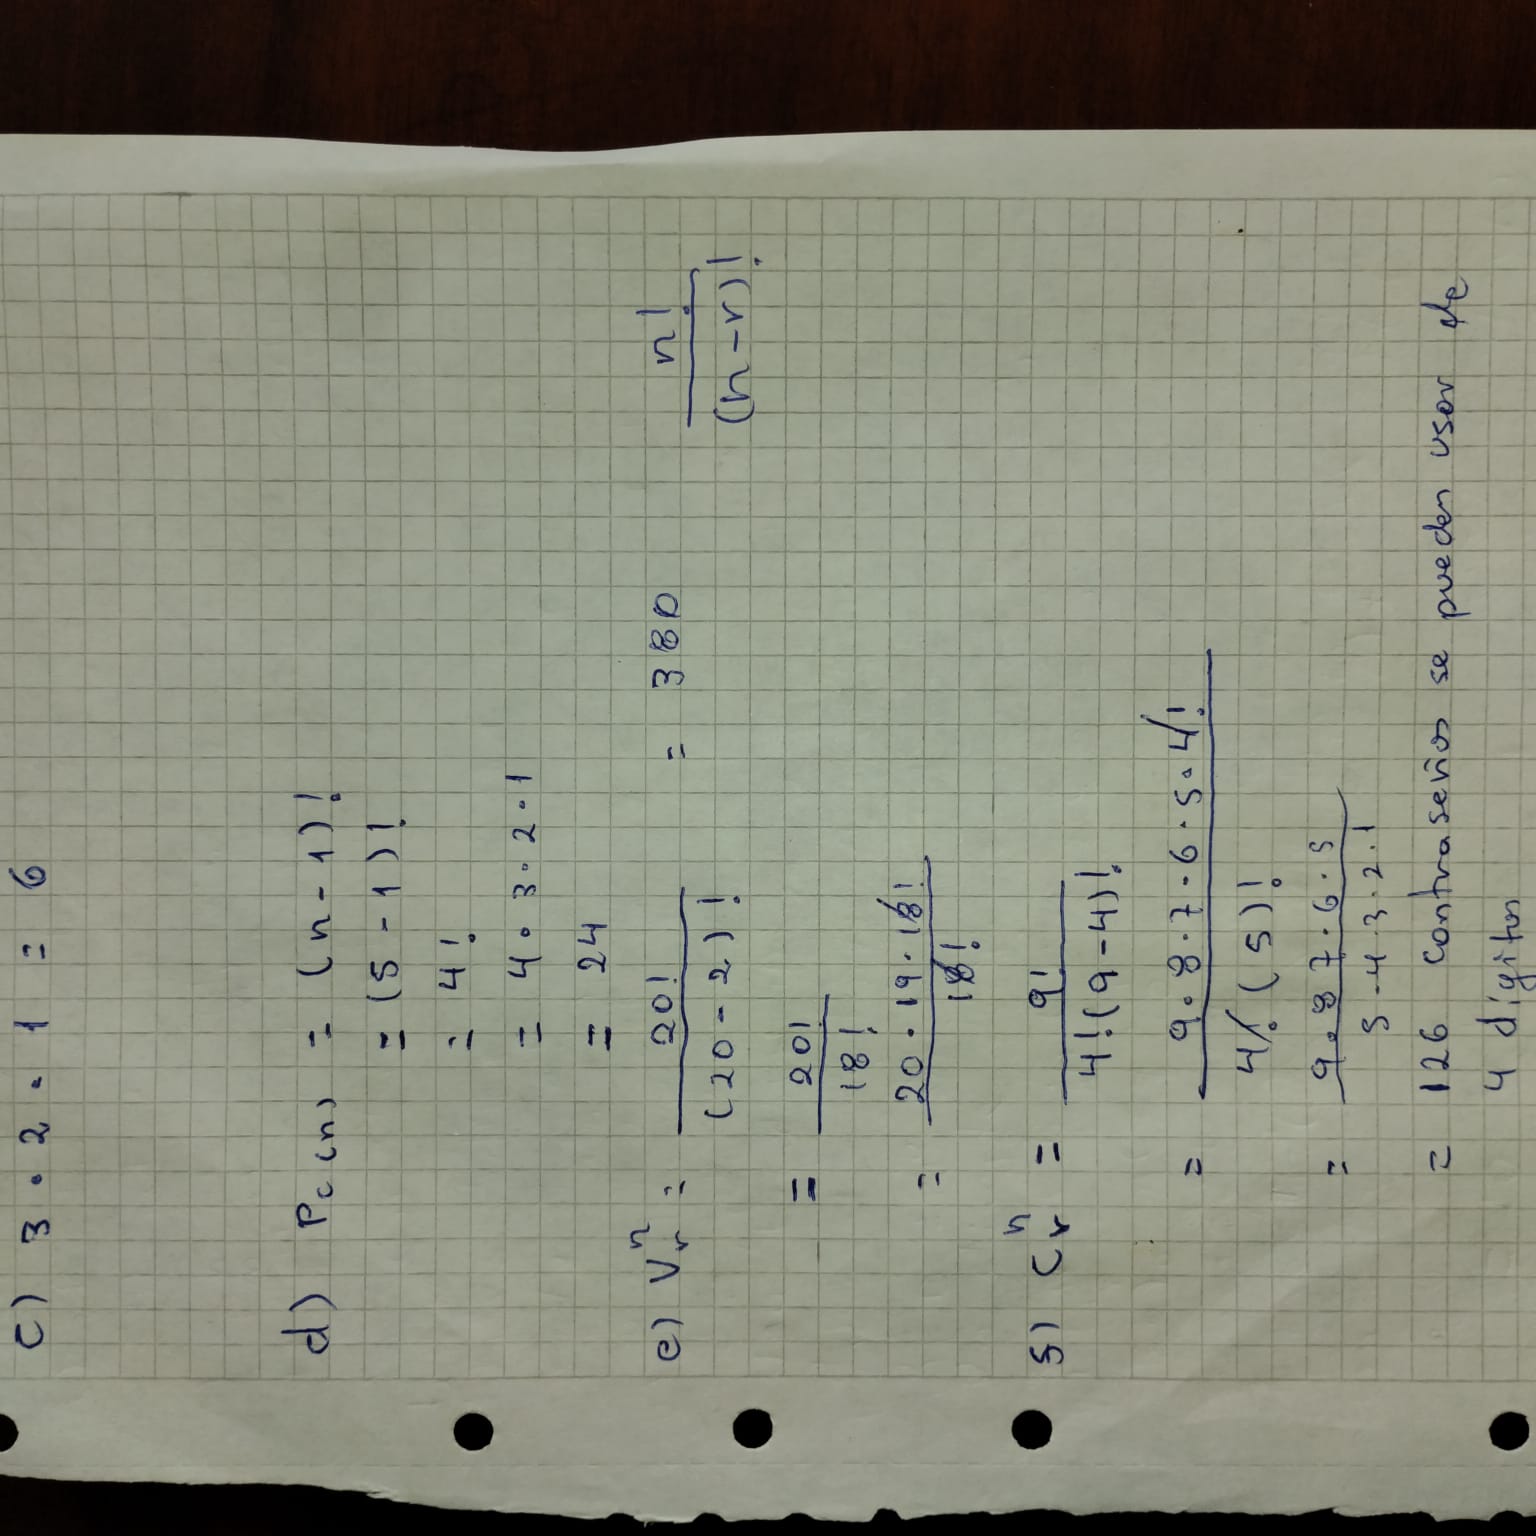 c) 3 . 2 . 1 = 6
d) Pc (n) = (n - 1)!
= (5 - 1)!
= 4!
= 4 . 3 . 2 . 1
= 24
e) V n r = 20! / (20 - 2)! = 380 n! / (n - r)!
= 20! / 18!
= 20 . 19 . 18! / 18!
5) C n r = 9! / 4! (9 - 4)!
= 9 . 8 . 7 . 6 . 5 . 4! / 4! (5)!
= 9 . 8 7 . 6 . 5 / 5 . 4 . 3 . 2 . 1
= 126 contraseñas se pueden usar de
4 dígitos